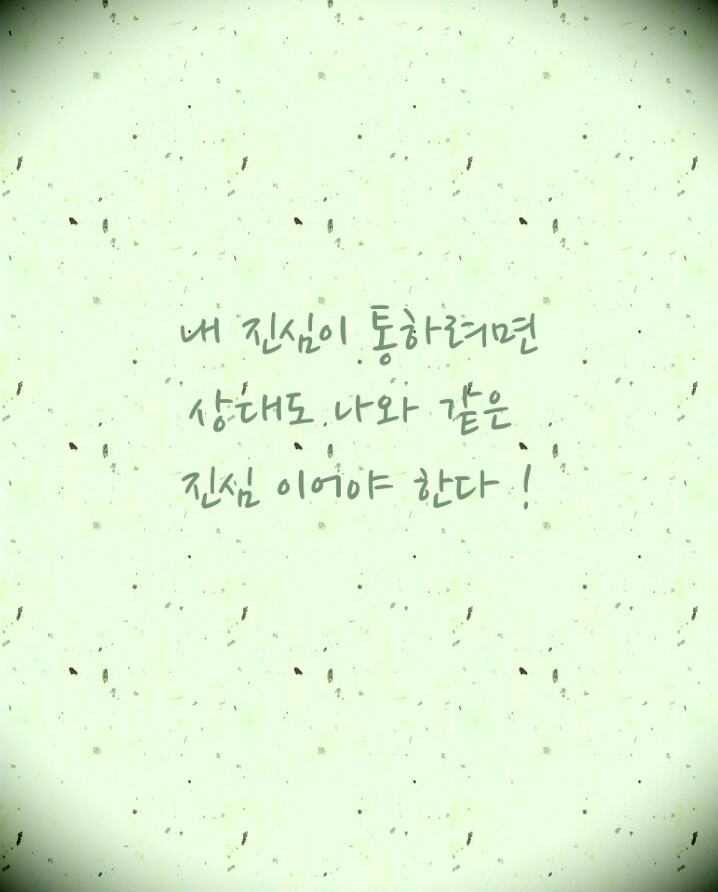 내 진심이 통하려면
상대도 나와 같은
진심 이어야 한다 !